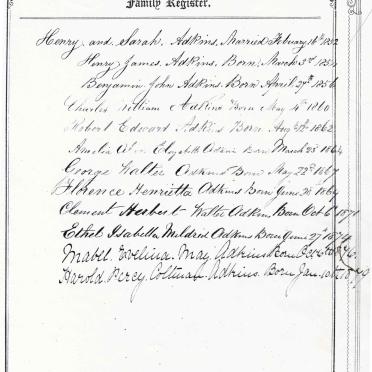 Family Register.
Henry and Sarah Adkins. Married February 16th 1852
Henry James Adkins. Born. March 3rd 1854
Benjamin John Adkins. Born April 29th 1856
Charles William Adkins Born May 4th 1860
Robert Edward Adkins Born. Augst 12th 1862
Amelia Elizabeth Adkins Born March 28 1864
George Walter Adkins Born May 22nd 1867
Florence Henrietta Adkins Born June 21 1869
Clement Herbert Walter Adkins Born Oct 6 1871
Ethel Isabella Mildred Adkins Born June 27 1874
Mabel. Evelina. May. Adkins Born
Harold. Percy. Coltman. Adkins. Born Jan. 10th